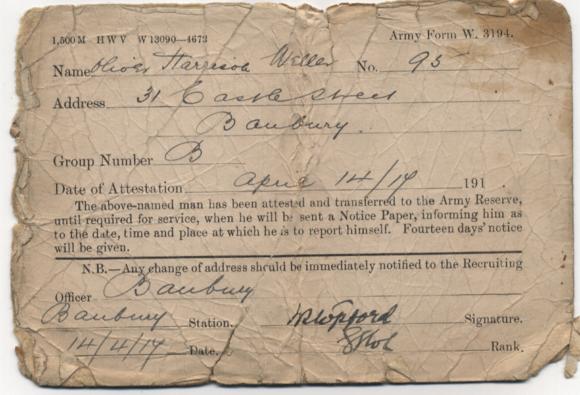 1,500M HWV W13090—4672 Army Form W. 3194.
Name Oliver Harrison Weller No. 95
Address 31 Castle Street
Banbury.
Group Number B
Date of Attestation April 14/17 191 .
The above-named man has been attested and transferred to the Army Reserve,
until required for service, when he will be sent a Notice Paper, informing him as
to the date, time and place at which he is to report himself. Fourteen days' notice
will be given.
N.B.—Any change of address should be immediately notified to the Recruiting
Officer Banbury
Banbury Station. Signature.
14/4/17 Date. Rank.